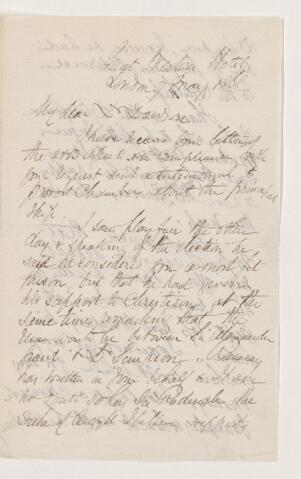 Hotel
London, May
My dear Dr Dawson
I have received your letter of
the and in compliance with
your request sent a testimonial to
Provost Chambers about the principal
ship.
I saw Playfair the other
day & speaking of the election he
said he considered you a most fit
person, but that he had given
his support to Christison at the
same time remarking that the
would be between Sir Alexander
Grant & Dr Simpson. Ramsay
has written in your behalf & I have
no doubt so has Sir Roderick the
Duke of Argyll I believe supports